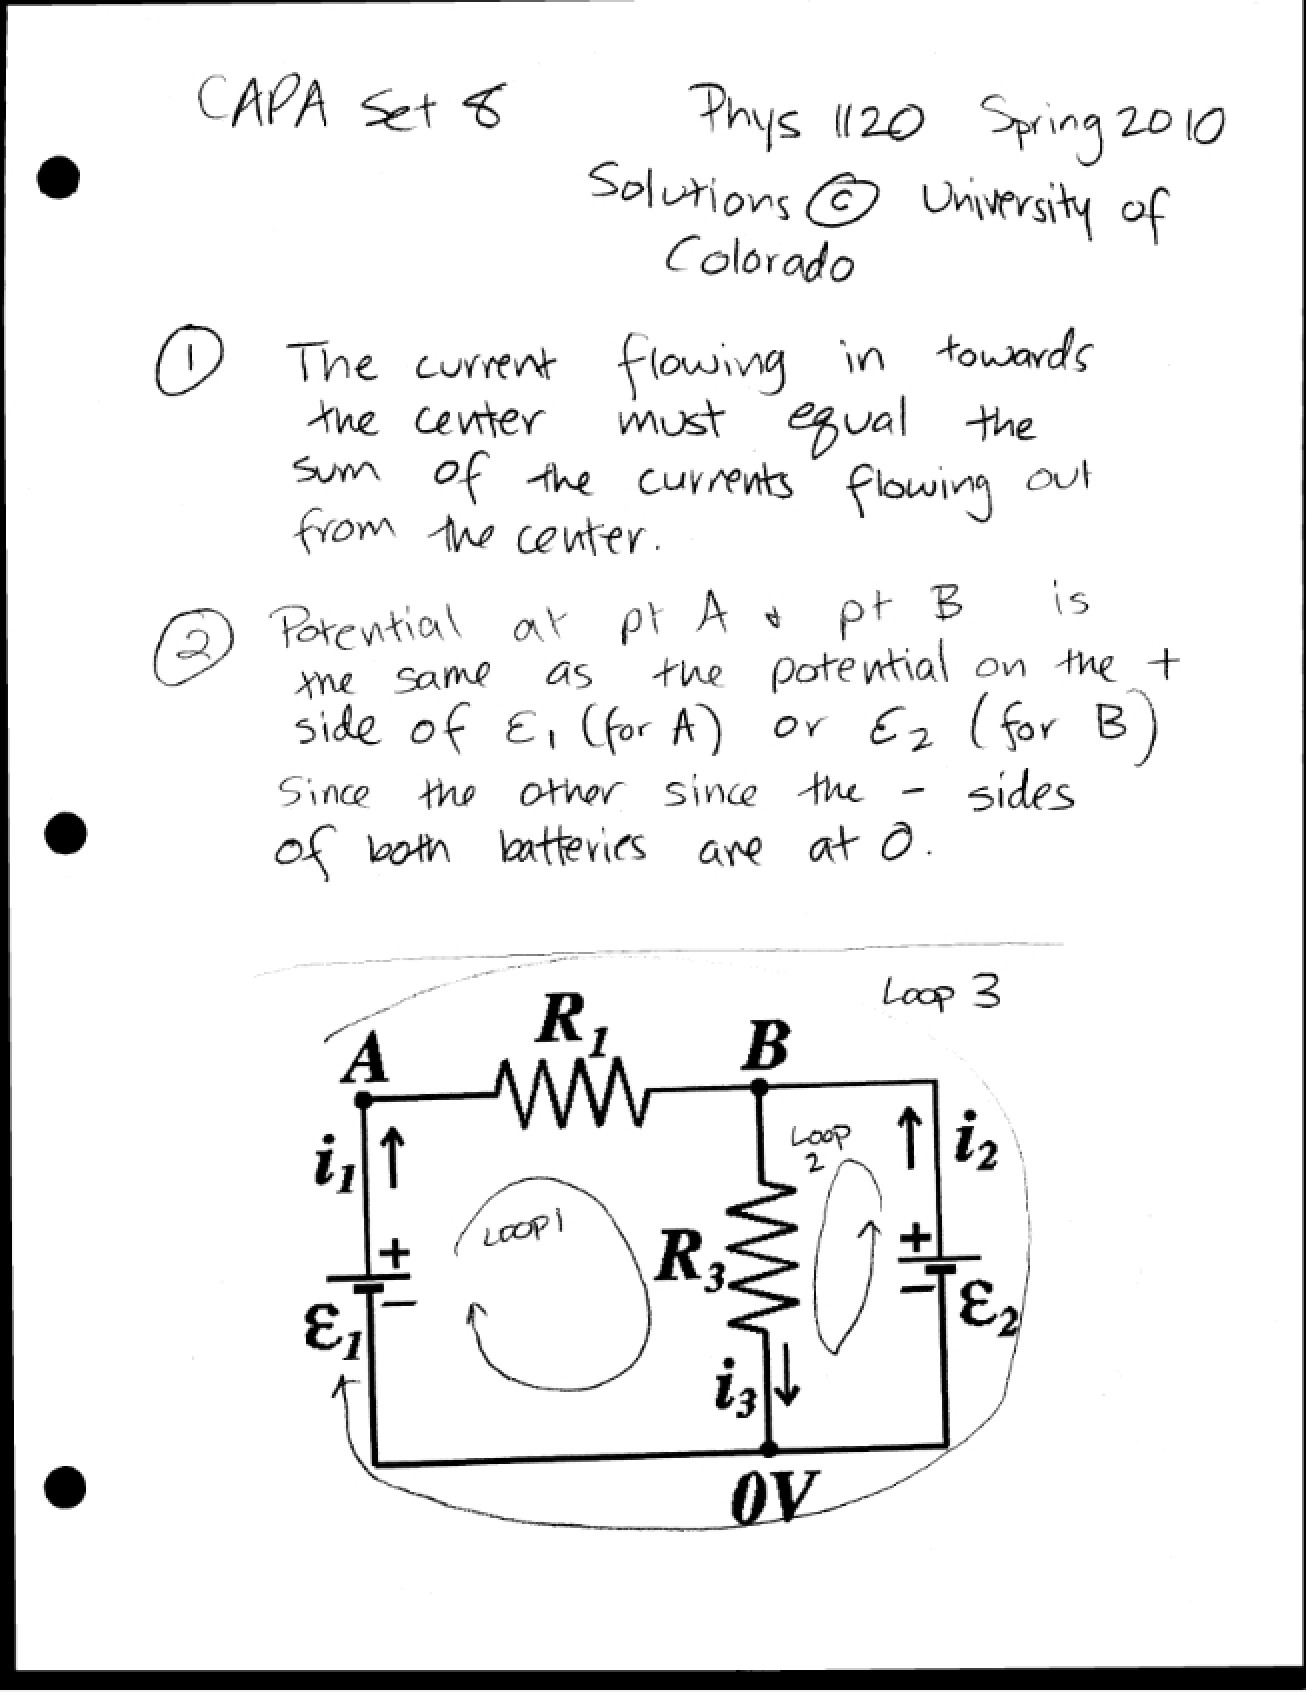 CAPA Set 8
Phys 1120 Spring 2010
Solutions © University of
Colorado
① The current flowing in towards
the center must equal the
sum of the currents flowing out
from the center.
② Potential at pt A & pt B is
the same as the potential on the +
side of ε₁ (for A) or ε₂ (for B)
Since the other since the - sides
of both batteries are at 0.
Loop 3
R₁
A
B
i₁
Loop
2
i₂
+
Loop 1
R₃
+
−
−
ε₁
ε₂
i₃
0V